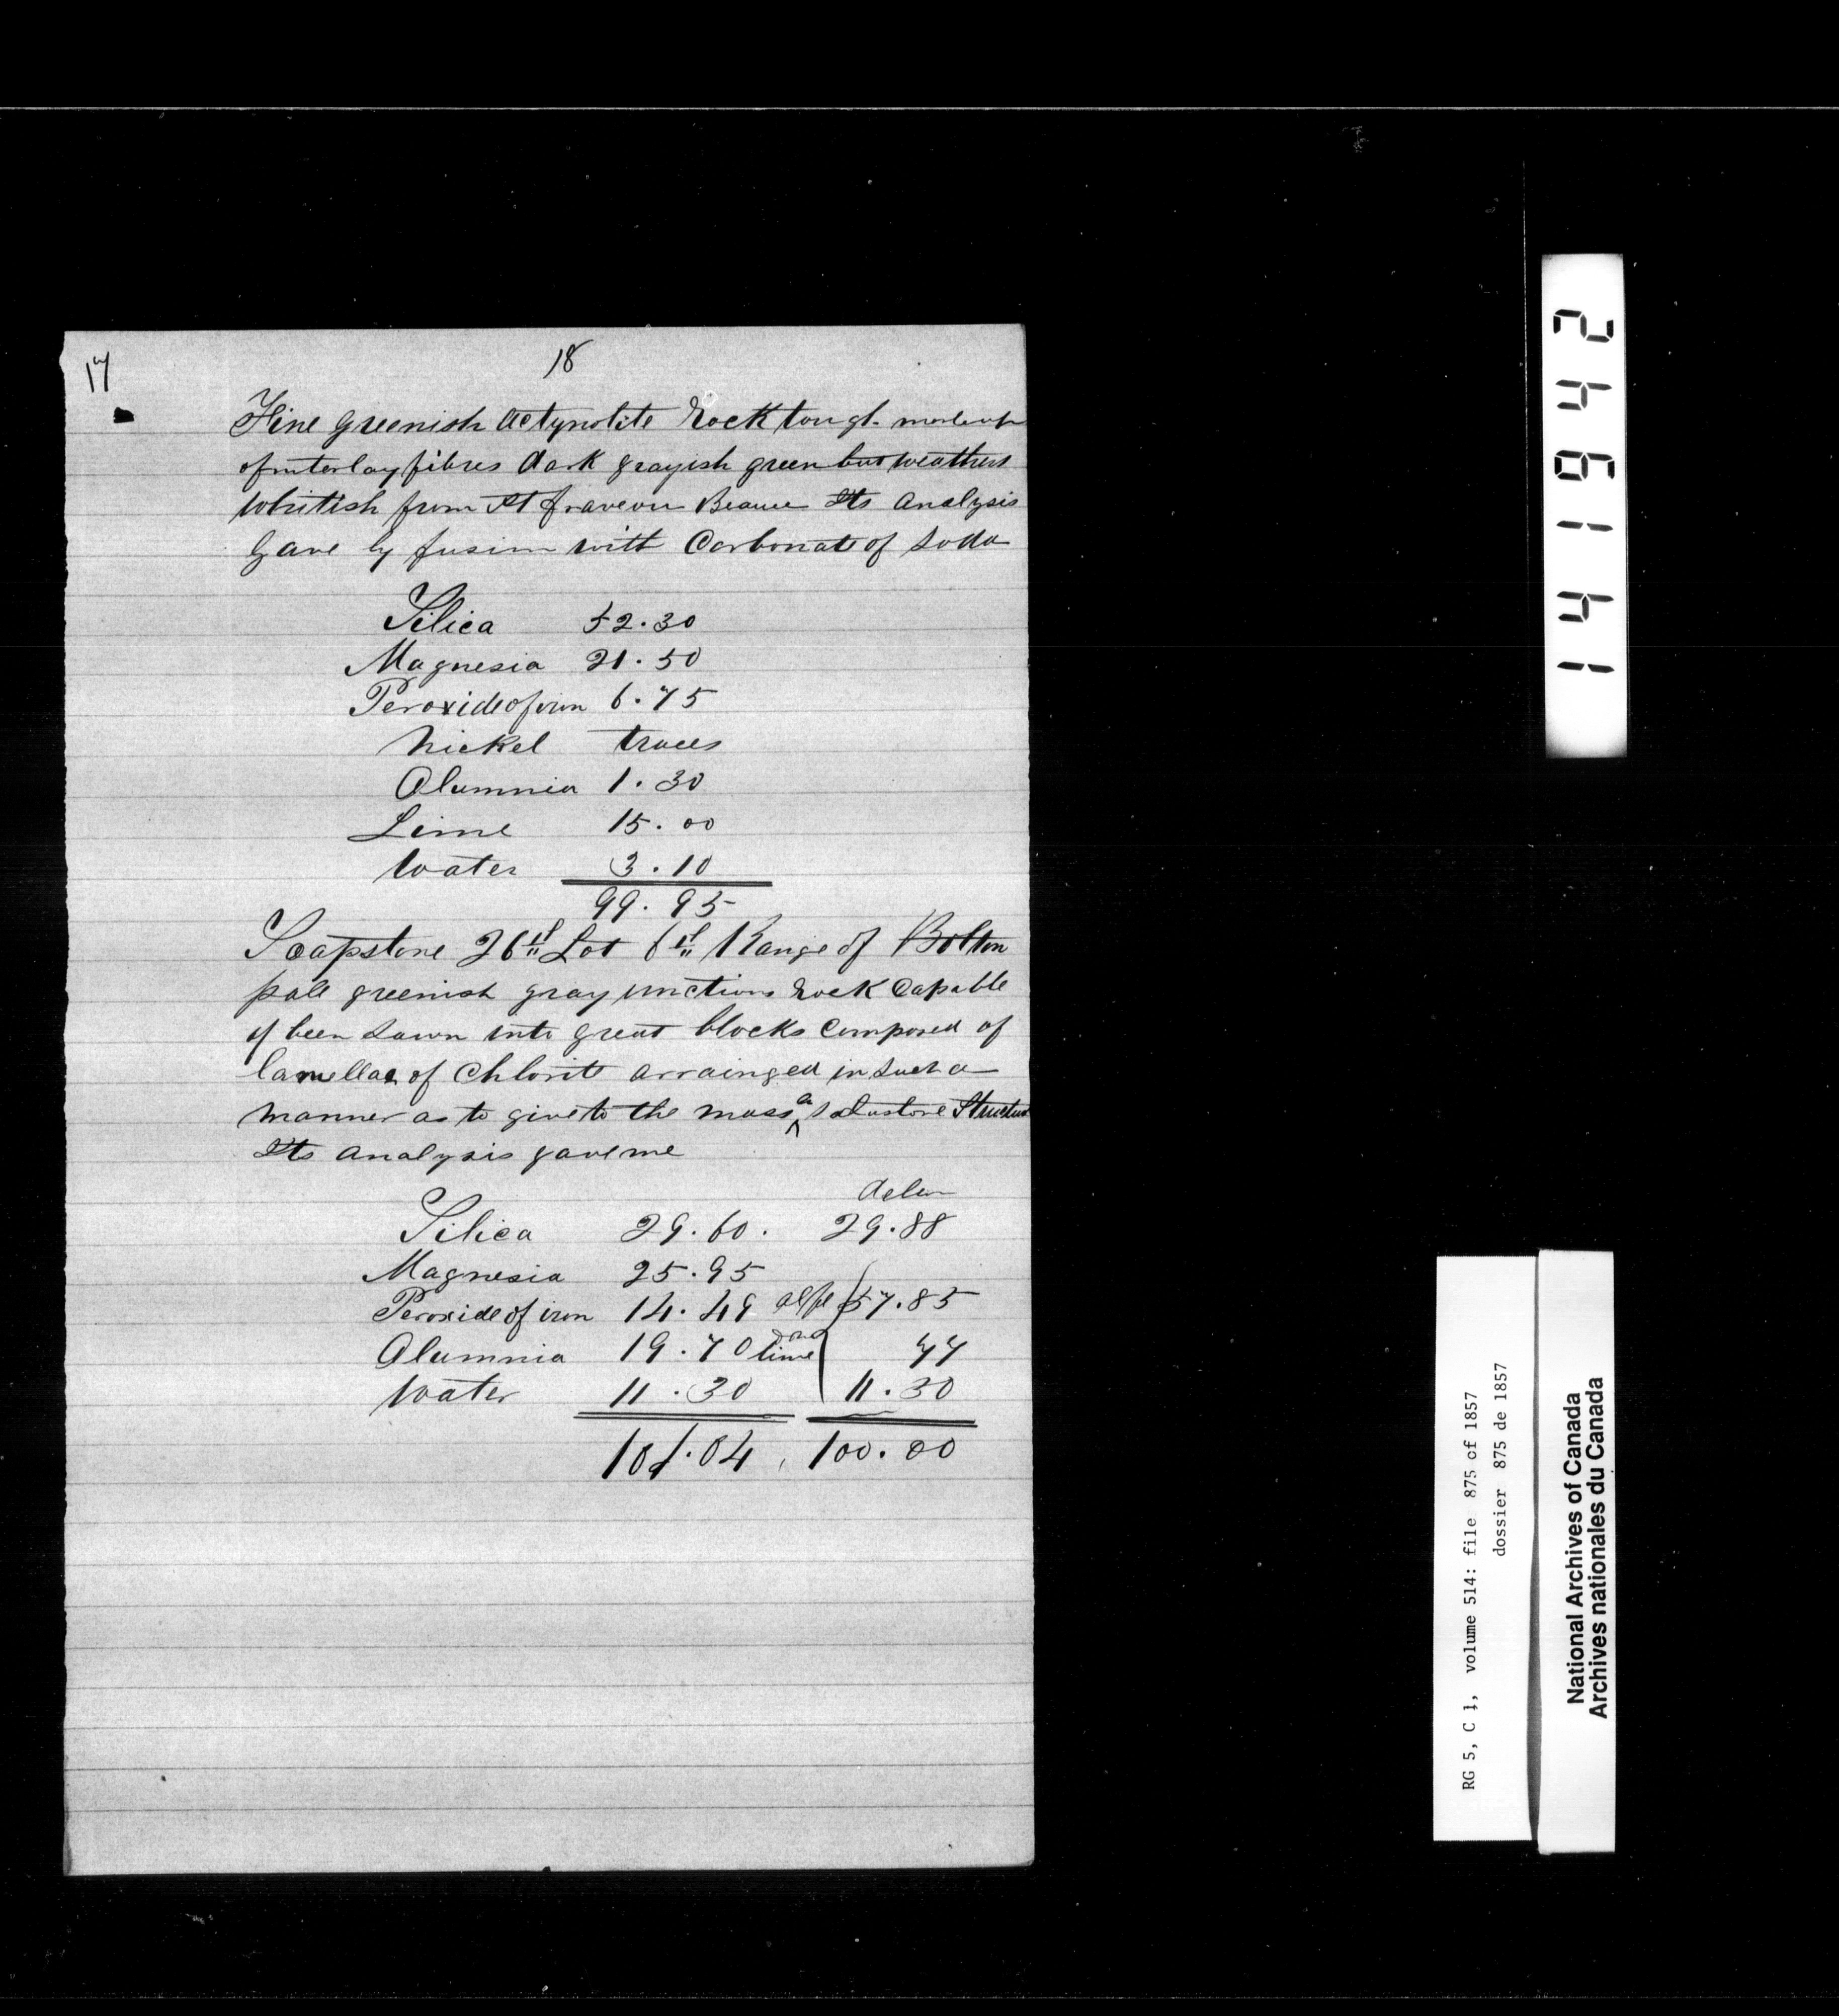 17
18
Fine greenish actynolite rock tough made up
of interlay fibres dark grayish green but weathers
whitish from St Beauce Its analysis
gave by fusion with Carbonate of Soda
Silica 52.30
Magnesia 21.50
Peroxide of iron 6.75
Nickel traces
Alumnia 1.30
Lime 15.00
Water 3.10
99.95
Soapstone 26th Lot 6th Range of Bolton
pale greenish gray unctions rock capable
of been sawn into great blocks composed of
lamellae of Chlorite arrainged in such a
manner as to give to the mass a Structure
Its analysis gave me
Silica 29.60. 29.88
Magnesia 25.95
Peroxide of iron 14.49 57.85
Alumnia 19.70 lime 77
Water 11.30 11.30
101.04 100.00
241614
RG 5, C 1, volume 514: file 875 of 1857
dossier 875 de 1857
National Archives of Canada
Archives nationales du Canada